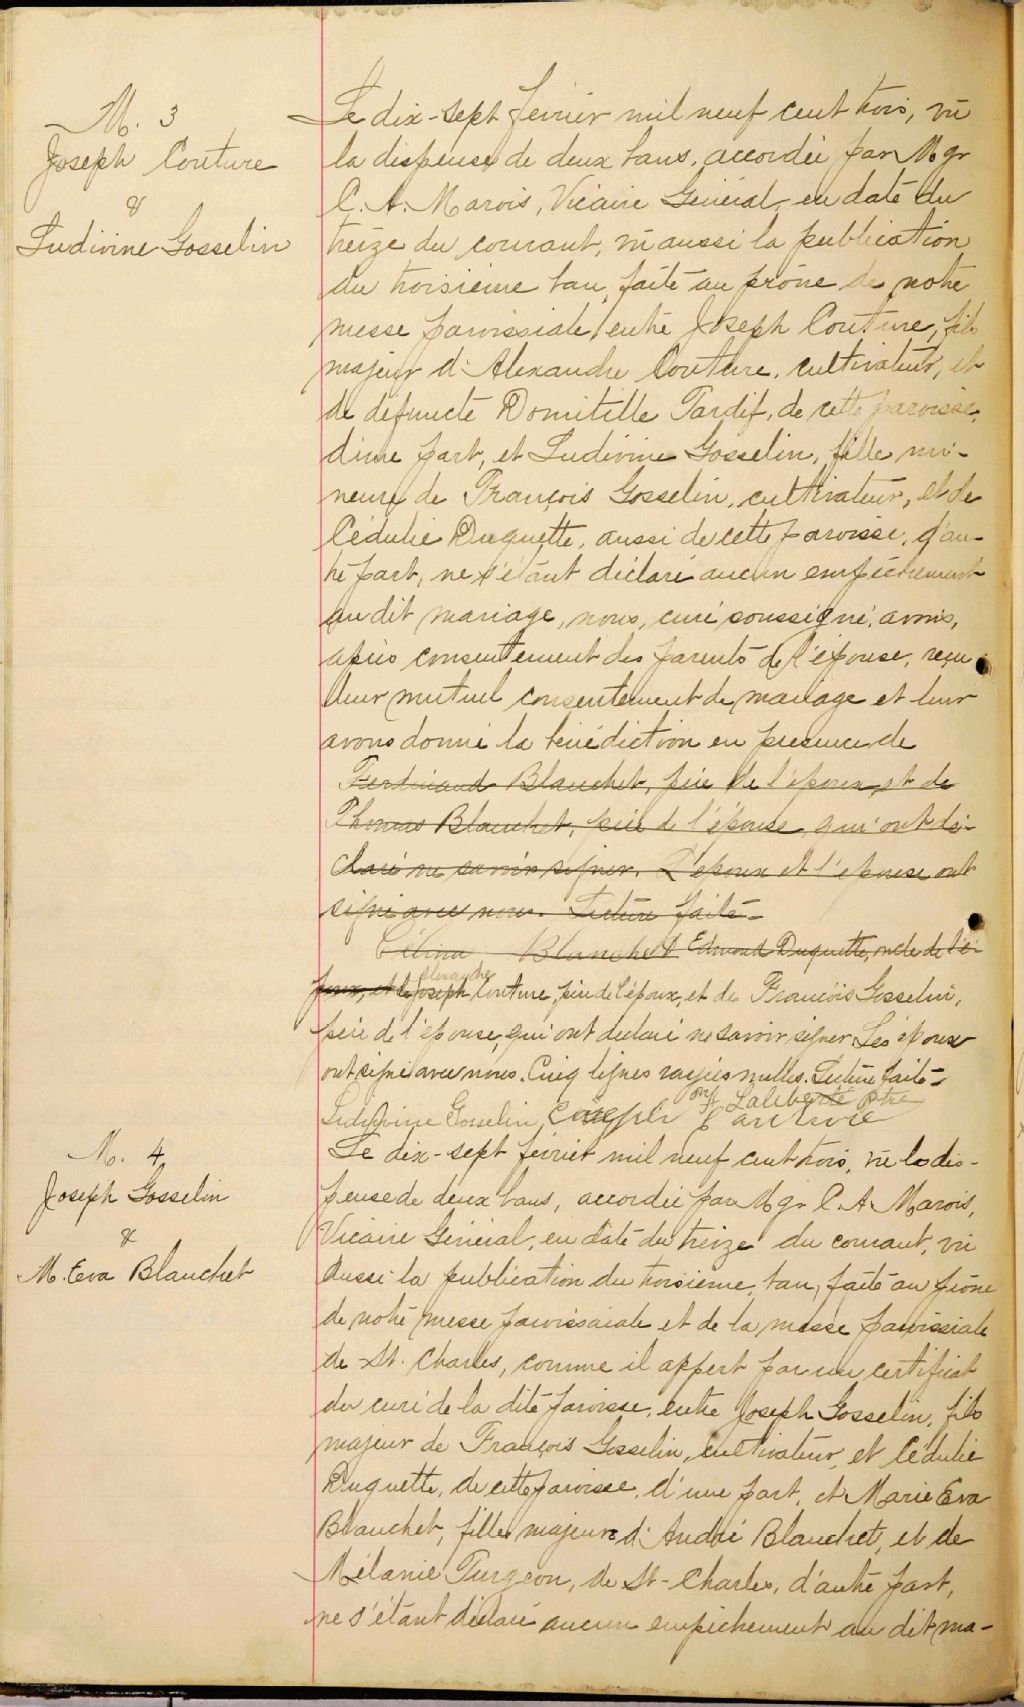 M. 3
Joseph Couture
&
Ludivine Gosselin
Le dix-sept février mil neuf cent trois, vu
la dispense de deux bans, accordée par Mgr
C. A. Marois, Vicaire Général, en date du
treize du courant, vu aussi la publication
du troisième ban, faite au prône de notre
messe paroissiale, entre Joseph Couture, fils
majeur d'Alexandre Couture, cultivateur, et
de défuncte Domitille Tardif, de cette paroisse,
d'une part, et Ludivine Gosselin, fille mi-
neure de François Gosselin, cultivateur, et de
Cédulie Duquette, aussi de cette paroisse, d'au-
tre part, ne s'étant déclaré aucun empêchement
au dit mariage, nous, curé soussigné, avons,
après consentement des parents de l'épouse, reçu
leur mutuel consentement de mariage et leur
avons donné la bénédiction en présence de
Ferdinand Blanchet, père de l'époux, et de
Thomas Blanchet, père de l'épouse, qui ont dé-
claré ne savoir signer. L'époux et l'épouse ont
signé avec nous. Lecture faite-
Célina Blanchet Edmond Duquette, oncle de l'é-
poux, et de Joseph Alexandre Couture, père de l'époux, et de François Gosselin,
père de l'épouse, qui ont déclaré ne savoir signer. Les époux
ont signé avec nous. Cinq lignes rayées nulles. Lecture faite-
Ludivine Gosselin Joseph Couture Laliberté ptre
M. 4
Joseph Gosselin
&
M. Eva Blanchet
Le dix-sept février mil neuf cent trois, vu la dis-
pense de deux bans, accordée par Mgr C. A. Marois,
Vicaire Général, en date du treize du courant, vu
aussi la publication du troisième ban, faite au prône
de notre messe paroissaiale et de la messe paroissiale
de St. Charles, comme il appert par un certificat
du curé de la dite paroisse, entre Joseph Gosselin, fils
majeur de François Gosselin, cultivateur, et Cédulie
Duquette, de cette paroisse, d'une part, et Marie Eva
Blanchet, fille majeure d'André Blanchet, et de
Mélanie Turgeon, de St-Charles, d'autre part,
ne s'étant déclaré aucun empêchement au dit ma-